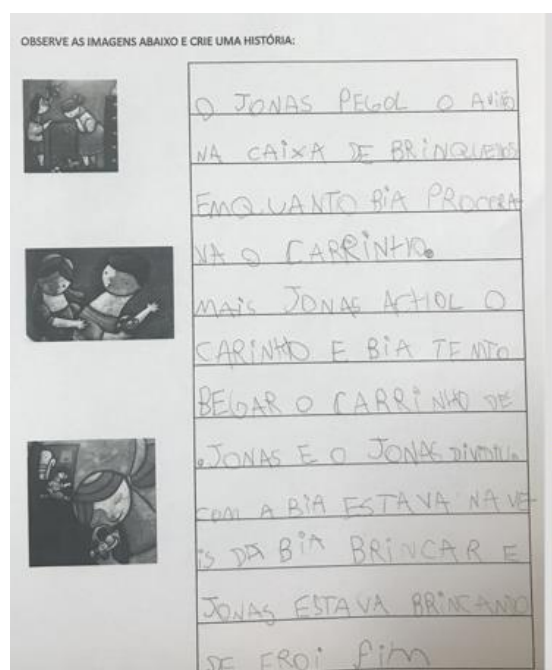 OBSERVE AS IMAGENS ABAIXO E CRIE UMA HISTÓRIA:
O JONAS PEGOL O AVIÃO
NA CAIXA DE BRINQUEDOS
EMQUANTO BIA PROCURA
VA O CARRINHO.
MAIS JONAS ACHOL O
CARINHO E BIA TENTO
BEGAR O CARRINHO DE
JONAS E O JONAS DIVIDIU
COM A BIA ESTAVA NA VE
IS DA BIA BRINCAR E
JONAS ESTAVA BRINCANDO
DE EROI FIM